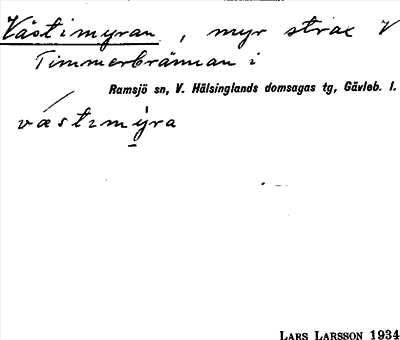 Västimyran, myr strax V
Timmerbrännan i
Ramsjö sn, V. Hälsinglands domsagas tg, Gävleb. l.
västimyra
LARS LARSSON 1934